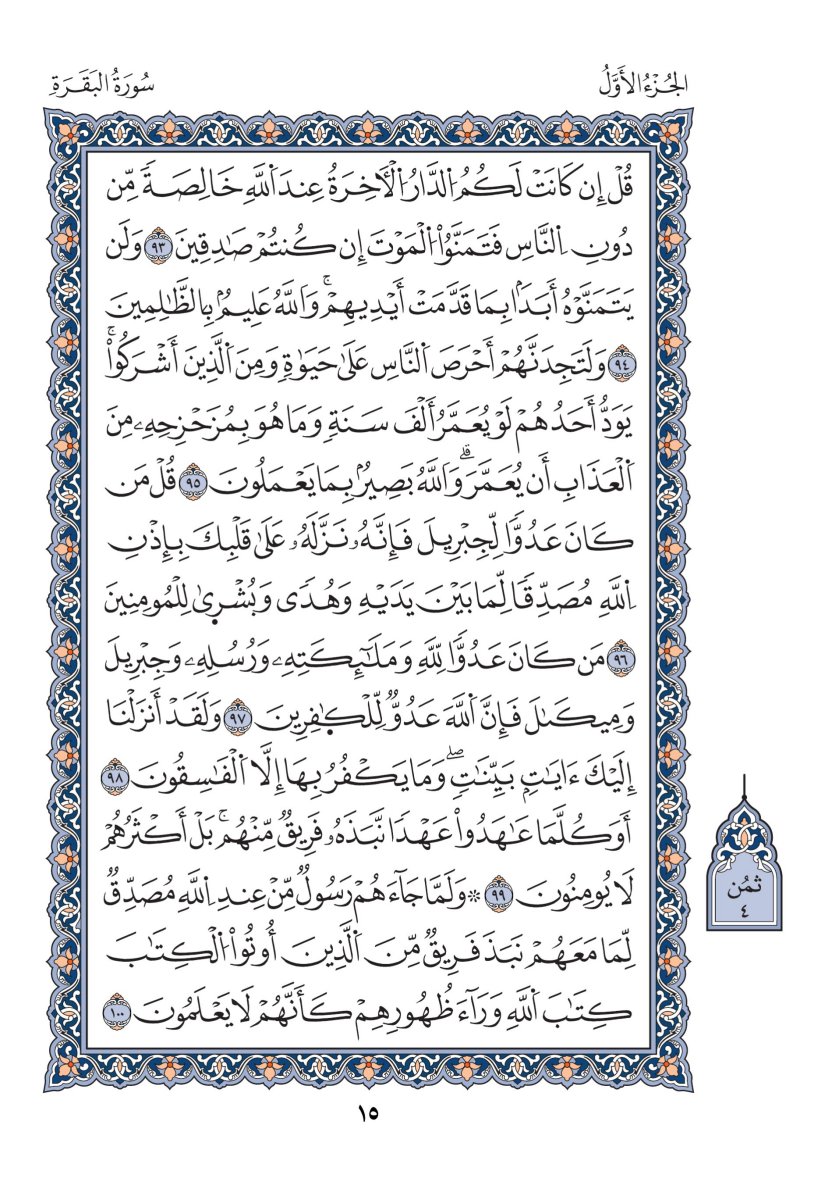 الجُزْءُ الأَوَّلُ
سُورَةُ البَقَرَةِ
قُلْ إِن كَانَتْ لَكُمُ اُ۬لدَّارُ اُ۬لْأٓخِرَةُ عِندَ اَ۬للَّهِ خَالِصَةٗ مِّن
دُونِ اِ۬لنَّاسِ فَتَمَنَّوُاْ اُ۬لْمَوْتَ إِن كُنتُمْ صَٰدِقِينَ ٩٣ وَلَن
يَتَمَنَّوْهُ أَبَدَاۢ بِمَا قَدَّمَتْ أَيْدِيهِمْۚ وَاللَّهُ عَلِيمُۢ بِالظَّٰلِمِينَ
٩٤ وَلَتَجِدَنَّهُمْ أَحْرَصَ اَ۬لنَّاسِ عَلَىٰ حَيَوٰةٖ وَمِنَ اَ۬لذِينَ أَشْرَكُواْۚ
يَوَدُّ أَحَدُهُمْ لَوْ يُعَمَّرُ أَلْفَ سَنَةٖ وَمَا هُوَ بِمُزَحْزِحِهِۦ مِنَ
اَ۬لْعَذَابِ أَن يُعَمَّرَۗ وَاللَّهُ بَصِيرُۢ بِمَا يَعْمَلُونَ ٩٥ قُلْ مَن
كَانَ عَدُوّٗا لِّجِبْرِيلَ فَإِنَّهُۥ نَزَّلَهُۥ عَلَىٰ قَلْبِكَ بِإِذْنِ
اِ۬للَّهِ مُصَدِّقٗا لِّمَا بَيْنَ يَدَيْهِ وَهُدٗى وَبُشْر۪يٰ لِلْمُومِنِينَ
٩٦ مَن كَانَ عَدُوّٗا لِّلهِ وَمَلَٰٓئِكَتِهِۦ وَرُسُلِهِۦ وَجِبْرِيلَ
وَمِيكَىٰلَ فَإِنَّ اَ۬للَّهَ عَدُوّٞ لِّلْكٰ۪فِرِينَ ٩٧ وَلَقَدْ أَنزَلْنَا
إِلَيْكَ ءَايَٰتِۢ بَيِّنَٰتٖۖ وَمَا يَكْفُرُ بِهَا إِلَّا اَ۬لْفَٰسِقُونَ ٩٨
أَوَكُلَّمَا عَٰهَدُواْ عَهْدٗا نَّبَذَهُۥ فَرِيقٞ مِّنْهُمۚ بَلْ أَكْثَرُهُمْ
لَا يُومِنُونَ ٩٩ ۞ وَلَمَّا جَآءَهُمْ رَسُولٞ مِّنْ عِندِ اِ۬للَّهِ مُصَدِّقٞ
لِّمَا مَعَهُمْ نَبَذَ فَرِيقٞ مِّنَ اَ۬لذِينَ أُوتُواْ اُ۬لْكِتَٰبَ
كِتَٰبَ اَ۬للَّهِ وَرَآءَ ظُهُورِهِمْ كَأَنَّهُمْ لَا يَعْلَمُونَ ١٠٠
ثمُن
٤
١٥